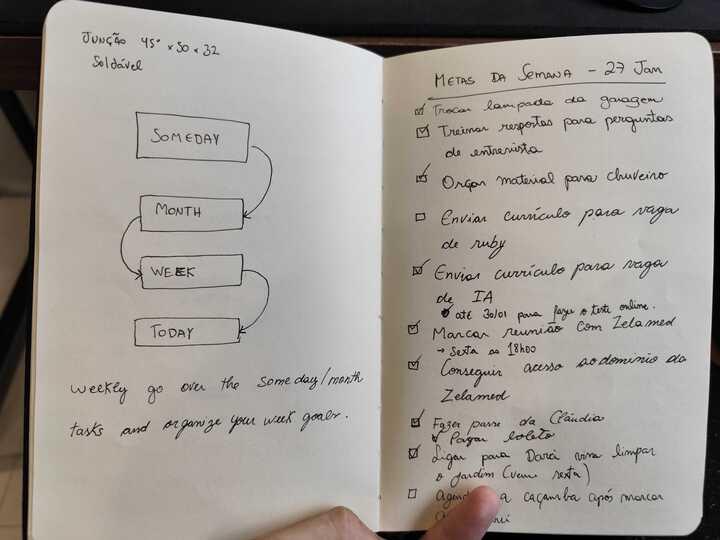 JUNÇÃO 45° x 50 x 32
Soldável
SOMEDAY
MONTH
WEEK
TODAY
Weekly go over the someday/month
tasks and organize your week goals.
METAS DA SEMANA - 27 Jan
Trocar lampada da garagem
Treinar respostas para perguntas
de entrevista
Orçar material para chuveiro
Enviar currículo para vaga
de ruby
Enviar currículo para vaga
de IA
até 30/01 para fazer o teste online.
Marcar reunião com Zelamed
→ Sexta as 18h00
Conseguir acesso ao dominio da
Zelamed
Fazer passe da Cláudia
Pagar boleto
Ligar para Darci vim limpar
o jardim (vem sexta)
a caçamba após marcar